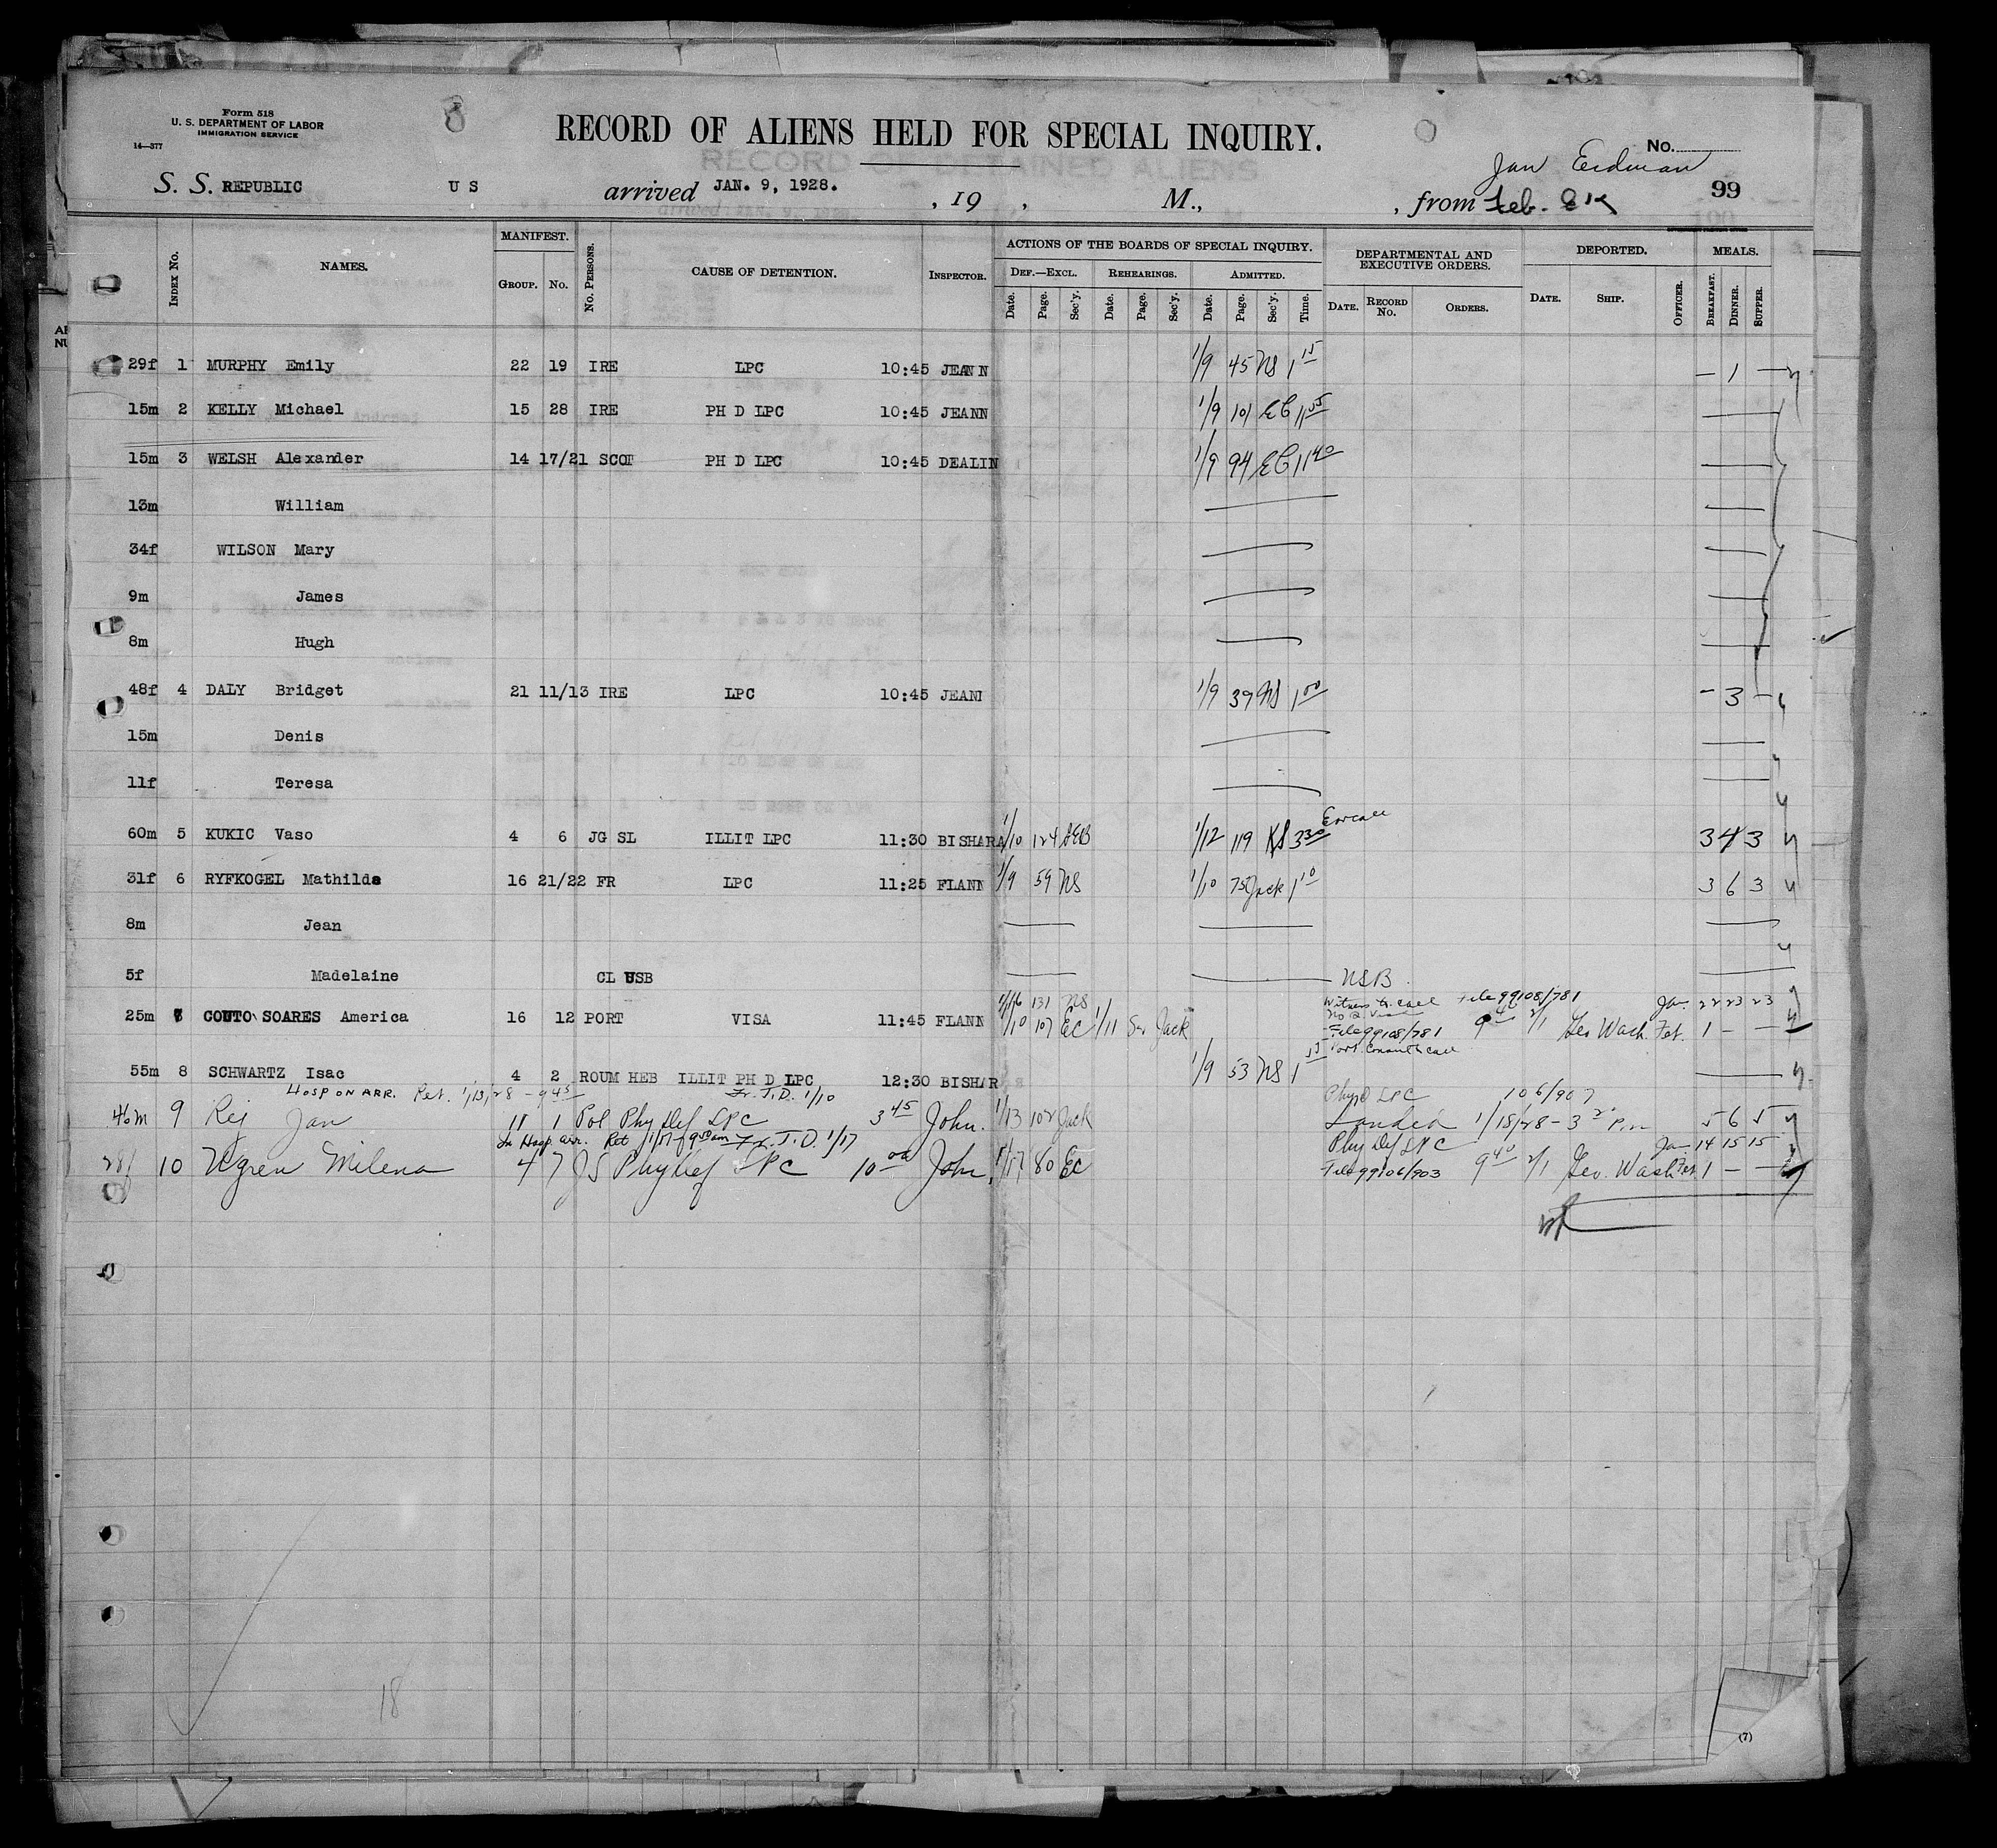 Form 518
U. S. DEPARTMENT OF LABOR
IMMIGRATION SERVICE
14—377
8
RECORD OF ALIENS HELD FOR SPECIAL INQUIRY.
No.
Jan Erdman
S. S. REPUBLIC U S arrived JAN. 9, 1928. , 19 , M., , from Feb. EK 99
INDEX No. NAMES. MANIFEST. GROUP. No. No. PERSONS. CAUSE OF DETENTION. INSPECTOR. ACTIONS OF THE BOARDS OF SPECIAL INQUIRY. DEPARTMENTAL AND EXECUTIVE ORDERS. DEPORTED. MEALS.
DEF.—EXCL. REHEARINGS. ADMITTED.
Date. Page. Sec'y. Date. Page. Sec'y. Date. Page. Sec'y. Time. DATE. RECORD No. ORDERS. DATE. SHIP. OFFICER. BREAKFAST. DINNER. SUPPER.
29f 1 MURPHY Emily 22 19 IRE LPC 10:45 JEANN 1/9 45 NS 1 15 — 1 —
15m 2 KELLY Michael 15 28 IRE PH D LPC 10:45 JEANN 1/9 101 EC 11 55
15m 3 WELSH Alexander 14 17/21 SCOT PH D LPC 10:45 DEALIN 1/9 94 EC 11 40
13m William
34f WILSON Mary
9m James
8m Hugh
48f 4 DALY Bridget 21 11/13 IRE LPC 10:45 JEANN 1/9 39 NS 1 00 — 3 —
15m Denis
11f Teresa
60m 5 KUKIC Vaso 4 6 JG SL ILLIT LPC 11:30 BISHARA 1/10 124 AEB 1/12 119 KS 3 30 3 4 3
31f 6 RYFKOGEL Mathilde 16 21/22 FR LPC 11:25 FLANN 1/9 59 NS 1/10 75 Jack 1 10 3 6 3
8m Jean
5f Madelaine CL USB NSB
25m 7 COUTO SOARES America 16 12 PORT VISA 11:45 FLANN 1/16 131 NS
1/10 107 EC 1/11 Jack
File 99108/781 Jan. 22 23 23
File 99108/781 9 40 2/1 Geo Wash. Fet. 1 — —
55m 8 SCHWARTZ Isac 4 2 ROUM HEB ILLIT PH D LPC 12:30 BISHAR 1/9 53 NS 1 55
HOSP ON ARR. Ret. 1/13/28 - 9 45 Tr. T.D. 1/10
46m 9 Rej Jan 11 1 Pol Phy Def LPC 3 45 John. 1/13 102 Jack Phys D LPC 106/907
Landed 1/18/28 - 3 20 P.m 5 6 5
In Hosp arr. Ret 1/17 - 9 50 am Tr. T.D. 1/17
28f 10 Ugren Milena 4 7 JS Phy Def LPC 10 00 John. 1/17 80 EC Phy Def LPC Jan 14 15 15
File 99106/903 9 40 2/1 Geo. Wash Fet. 1 — —
18
(7)